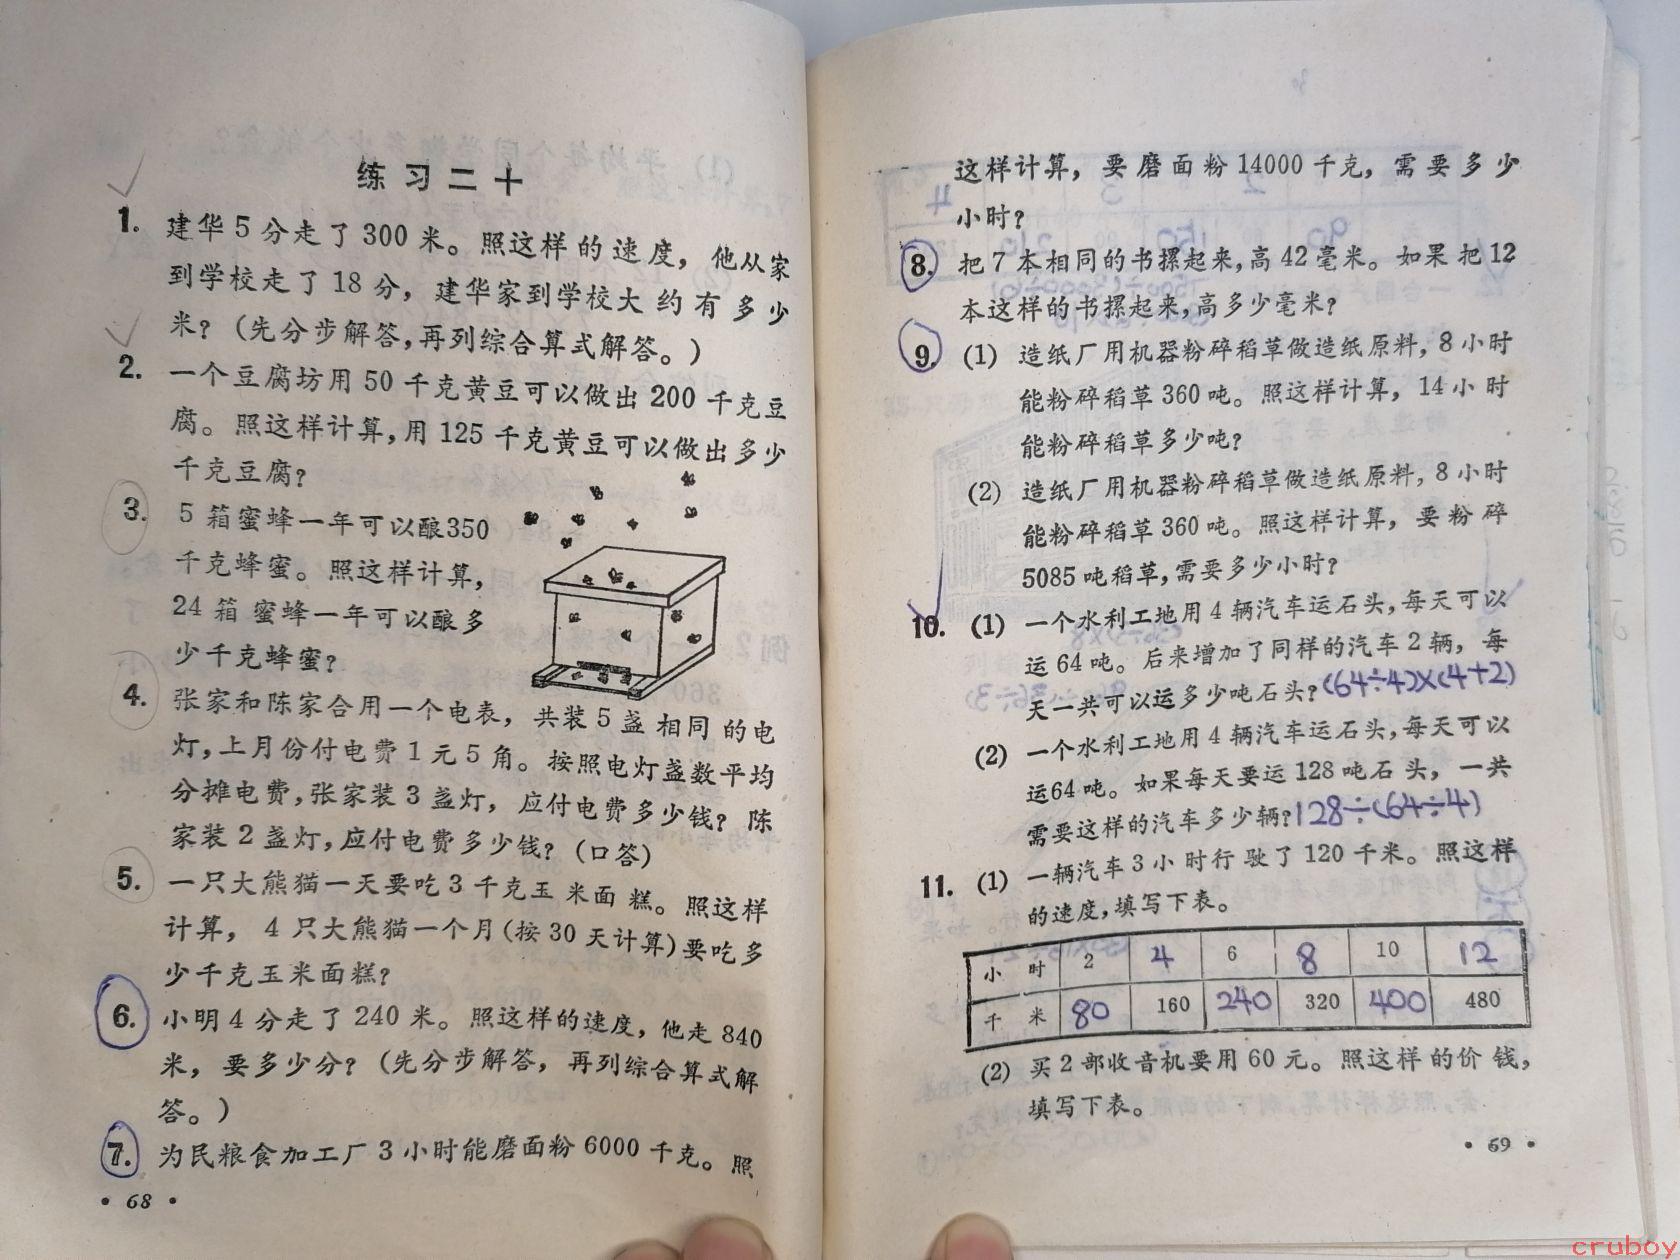 练习二十
1. 建华5分走了300米。照这样的速度，他从家
到学校走了18分，建华家到学校大约有多少
米？（先分步解答，再列综合算式解答。）
2. 一个豆腐坊用50千克黄豆可以做出200千克豆
腐。照这样计算，用125千克黄豆可以做出多少
千克豆腐？
3. 5箱蜜蜂一年可以酿350
千克蜂蜜。照这样计算，
24箱蜜蜂一年可以酿多
少千克蜂蜜？
4. 张家和陈家合用一个电表，共装5盏相同的电
灯，上月份付电费1元5角。按照电灯盏数平均
分摊电费，张家装3盏灯，应付电费多少钱？陈
家装2盏灯，应付电费多少钱？（口答）
5. 一只大熊猫一天要吃3千克玉米面糕。照这样
计算，4只大熊猫一个月（按30天计算）要吃多
少千克玉米面糕？
6. 小明4分走了240米。照这样的速度，他走840
米，要多少分？（先分步解答，再列综合算式解
答。）
7. 为民粮食加工厂3小时能磨面粉6000千克。照
• 68 •
这样计算，要磨面粉14000千克，需要多少
小时？
8. 把7本相同的书摞起来，高42毫米。如果把12
本这样的书摞起来，高多少毫米？
9. (1) 造纸厂用机器粉碎稻草做造纸原料，8小时
能粉碎稻草360吨。照这样计算，14小时
能粉碎稻草多少吨？
(2) 造纸厂用机器粉碎稻草做造纸原料，8小时
能粉碎稻草360吨。照这样计算，要粉碎
5085吨稻草，需要多少小时？
10. (1) 一个水利工地用4辆汽车运石头，每天可以
运64吨。后来增加了同样的汽车2辆，每
天一共可以运多少吨石头？(64÷4)×(4+2)
(2) 一个水利工地用4辆汽车运石头，每天可以
运64吨。如果每天要运128吨石头，一共
需要这样的汽车多少辆？128÷(64÷4)
11. (1) 一辆汽车3小时行驶了120千米。照这样
的速度，填写下表。
小时 2 4 6 8 10 12
千米 80 160 240 320 400 480
(2) 买2部收音机要用60元。照这样的价钱，
填写下表。
• 69 •
cruboy